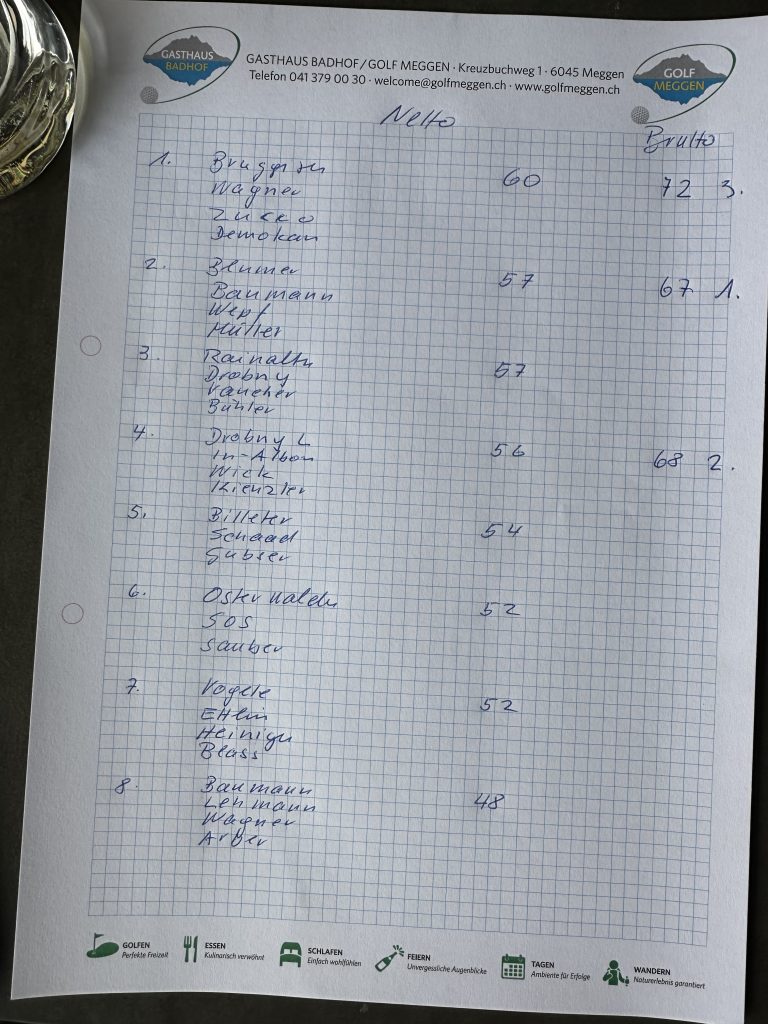 GASTHAUS
BADHOF
GASTHAUS BADHOF / GOLF MEGGEN · Kreuzbuchweg 1 · 6045 Meggen
Telefon 041 379 00 30 · welcome@golfmeggen.ch · www.golfmeggen.ch
GOLF
MEGGEN
Netto Brutto
1. 60 72 3.
Wagner
Zucco
Demokan
2. Blumer 57 67 1.
Baumann
Wepf
Müller
3. 57
Drobny
Vaucher
Bühler
4. Drobny L 56 68 2.
In-Albon
Wick
Kienzler
5. Billeter 54
Schaad
Gubser
6. Osterwalder 52
SOS
Sauber
7. Vogele 52
Ettlin
Heiniger
Blass
8. Baumann 48
Lehmann
Wagner
GOLFEN
Perfekte Freizeit
ESSEN
Kulinarisch verwöhnt
SCHLAFEN
Einfach wohlfühlen
FEIERN
Unvergessliche Augenblicke
TAGEN
Ambiente für Erfolge
WANDERN
Naturerlebnis garantiert